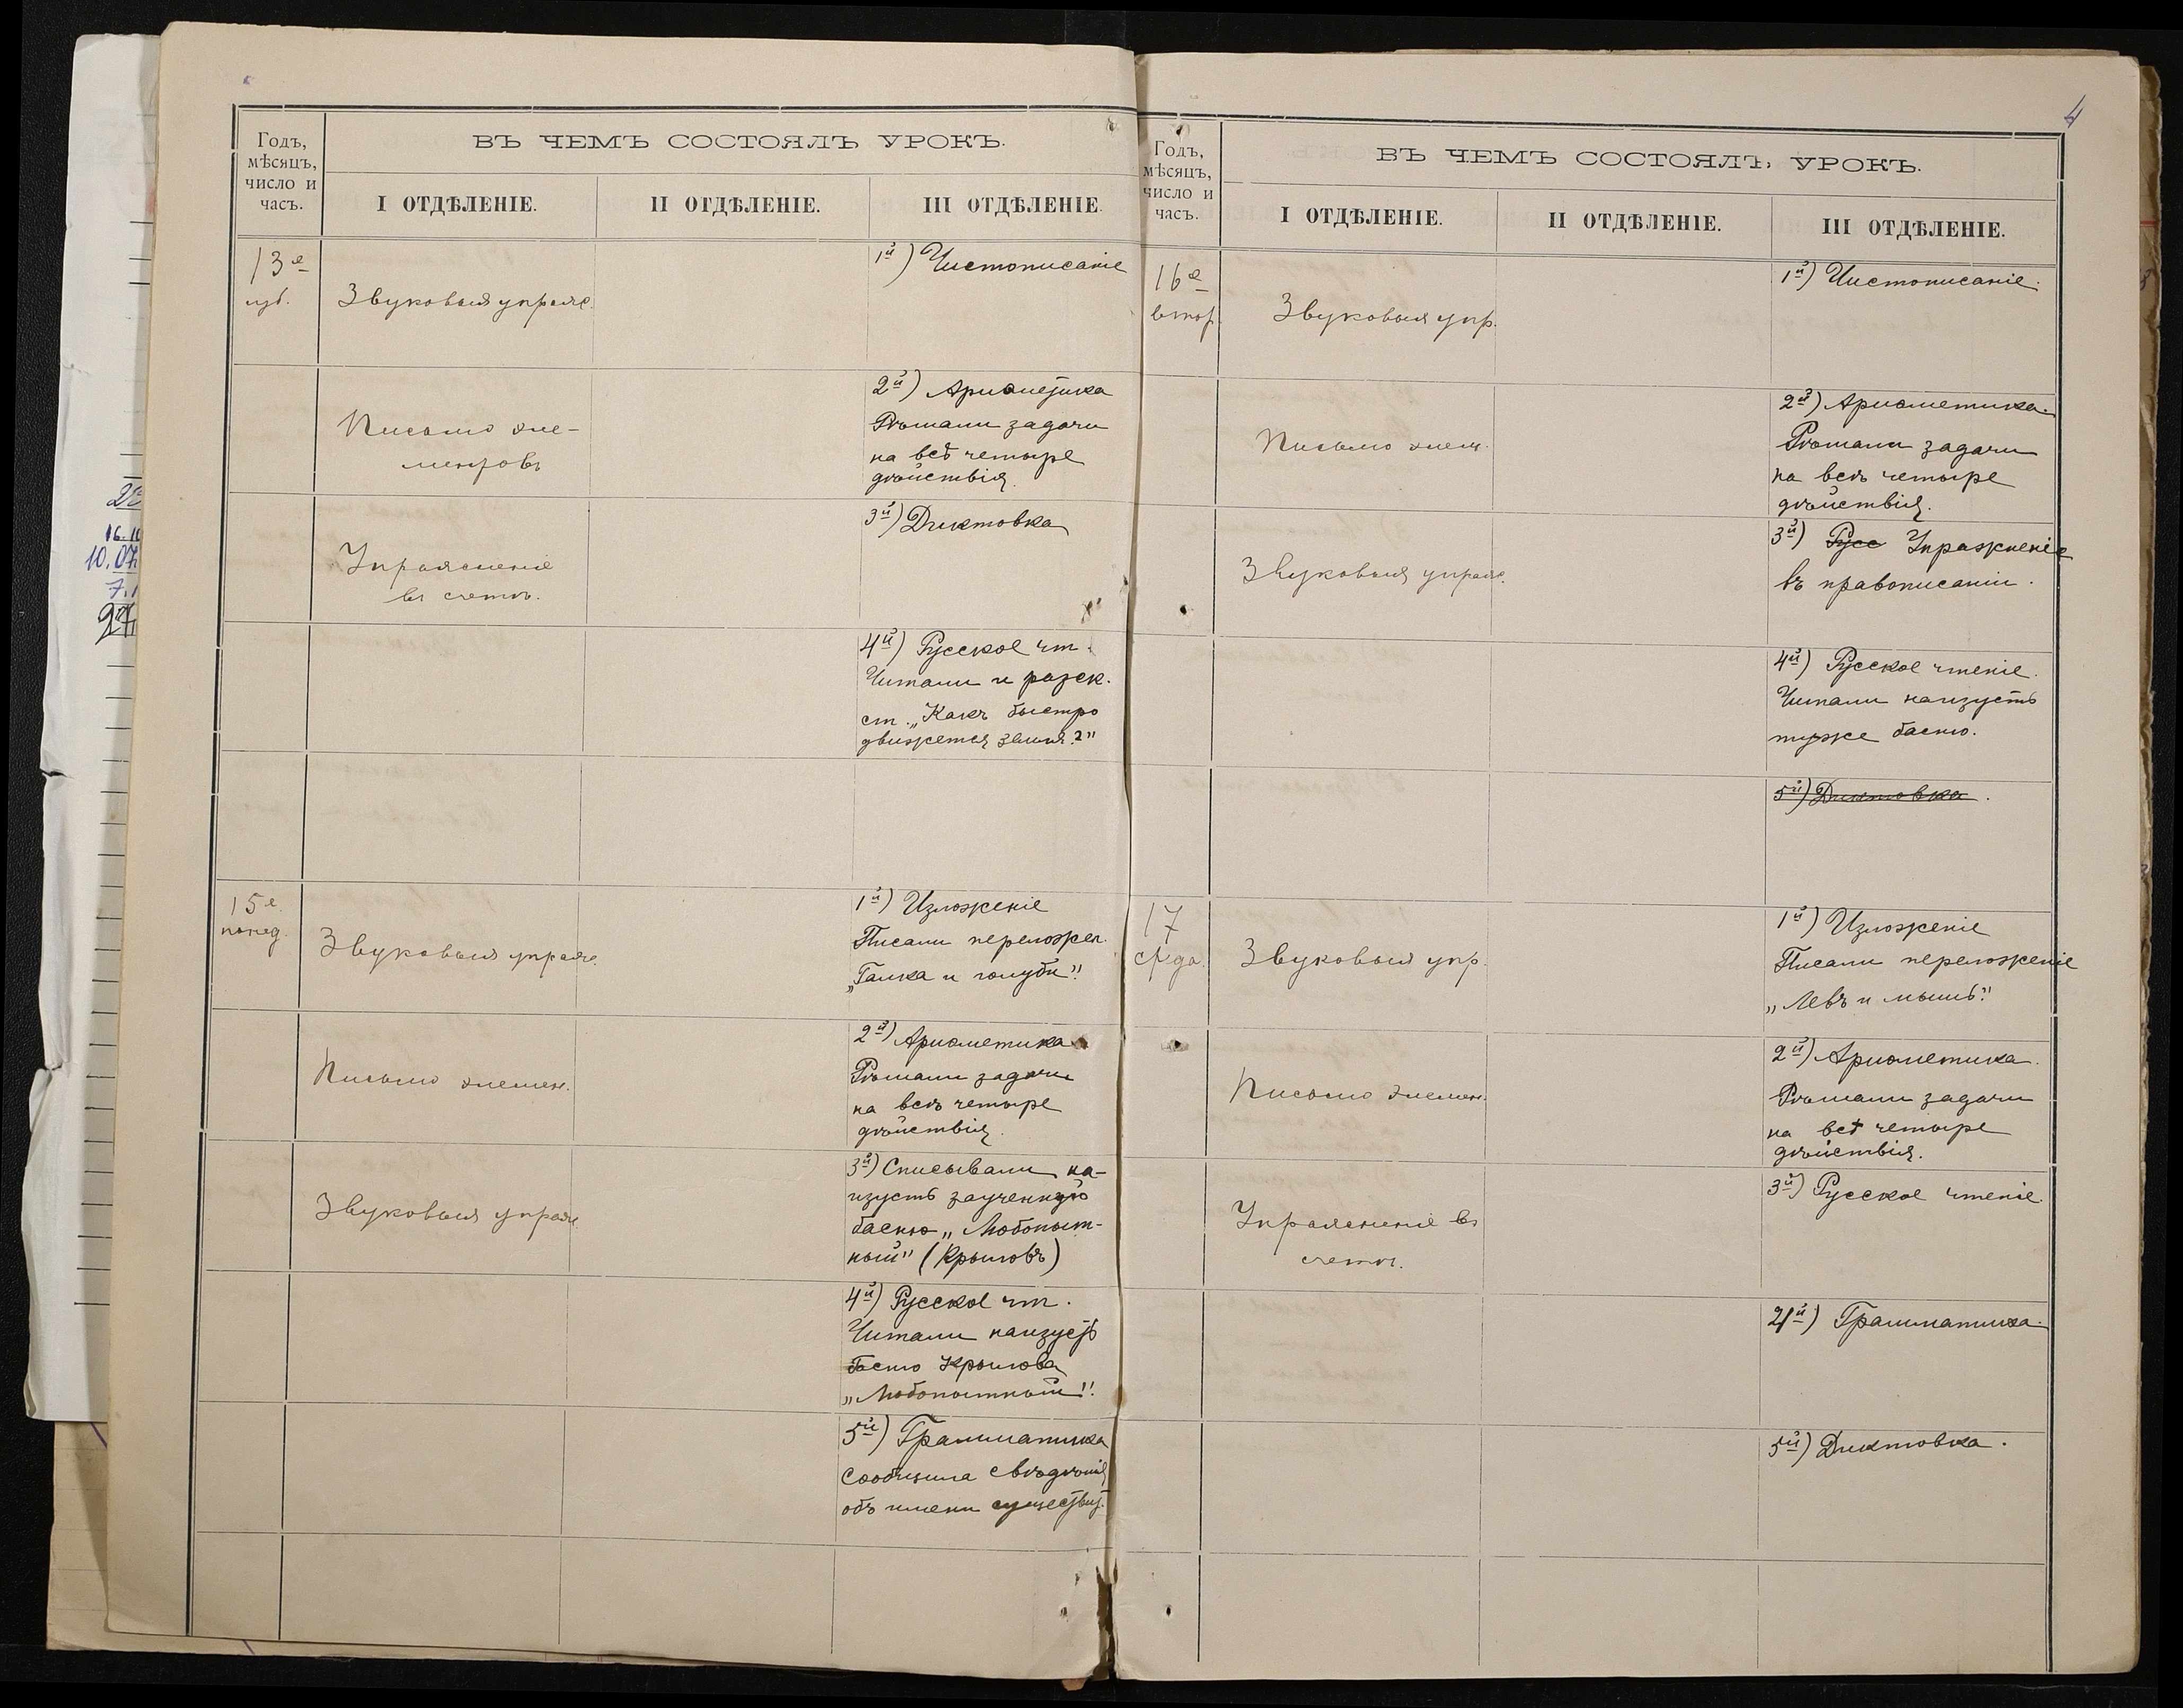 Годъ,
мѣсяцъ,
число и
часъ.
ВЪ ЧЕМЪ СОСТОЯЛЪ УРОКЪ.
I ОТДѢЛЕНІЕ.
II ОТДѢЛЕНІЕ.
III ОТДѢЛЕНІЕ.
13е
Звуковыя упраж.
1й) Чистописаніе
Письмо эле-
ментовъ
2й) Ариѳметика
Рѣшали задачи
на всѣ четыре
дѣйствія.
Упражненіе
въ счетѣ.
3й) Диктовка
4й) Русское чт.
Читали и разск.
ст. „Какъ быстро
движется земля?"
15е
понед.
Звуковыя упраж.
1й) Изложеніе
Писали переложен.
„Галка и голуби".
Письмо элемен.
2й) Ариѳметика
Рѣшали задачи
на всѣ четыре
дѣйствія.
Звуковыя упраж.
3й) Списывали на-
изусть заученную
басню „Любопыт-
ный" (Крыловъ)
4й) Русское чт.
Читали наизусть
басню Крылова
„Любопытный".
5й) Грамматика
Сообщила свѣдѣнія
объ имени существит.
4
Годъ,
мѣсяцъ,
число и
часъ.
ВЪ ЧЕМЪ СОСТОЯЛЪ, УРОКЪ.
I ОТДѢЛЕНІЕ.
II ОТДѢЛЕНІЕ.
III ОТДѢЛЕНІЕ.
16е
втор.
Звуковыя упр.
1й) Чистописаніе.
Письмо элем.
2й) Ариѳметика.
Рѣшали задачи
на всѣ четыре
дѣйствія.
Звуковыя упраж.
3й) Русс Упражненіе
въ правописаніи.
4й) Русское чтеніе.
Читали наизусть
туже басню.
5й) Диктовка.
17
среда
Звуковыя упр.
1й) Изложеніе
Писали переложеніе
„Левъ и мышь".
Письмо элемен.
2й) Ариѳметика.
Рѣшали задачи
на всѣ четыре
дѣйствія.
Упражненіе въ
счетѣ.
3й) Русское чтеніе.
4й) Грамматика.
5й) Диктовка.